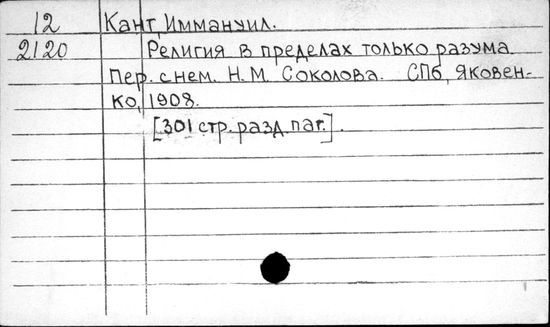 12 Кант, Иммануил.
2120 Религия в пределах только разума
Пер. с нем. Н.М. Соколова. СПб, Яковен-
ко, 1908.
[301 стр. разд. паг.].